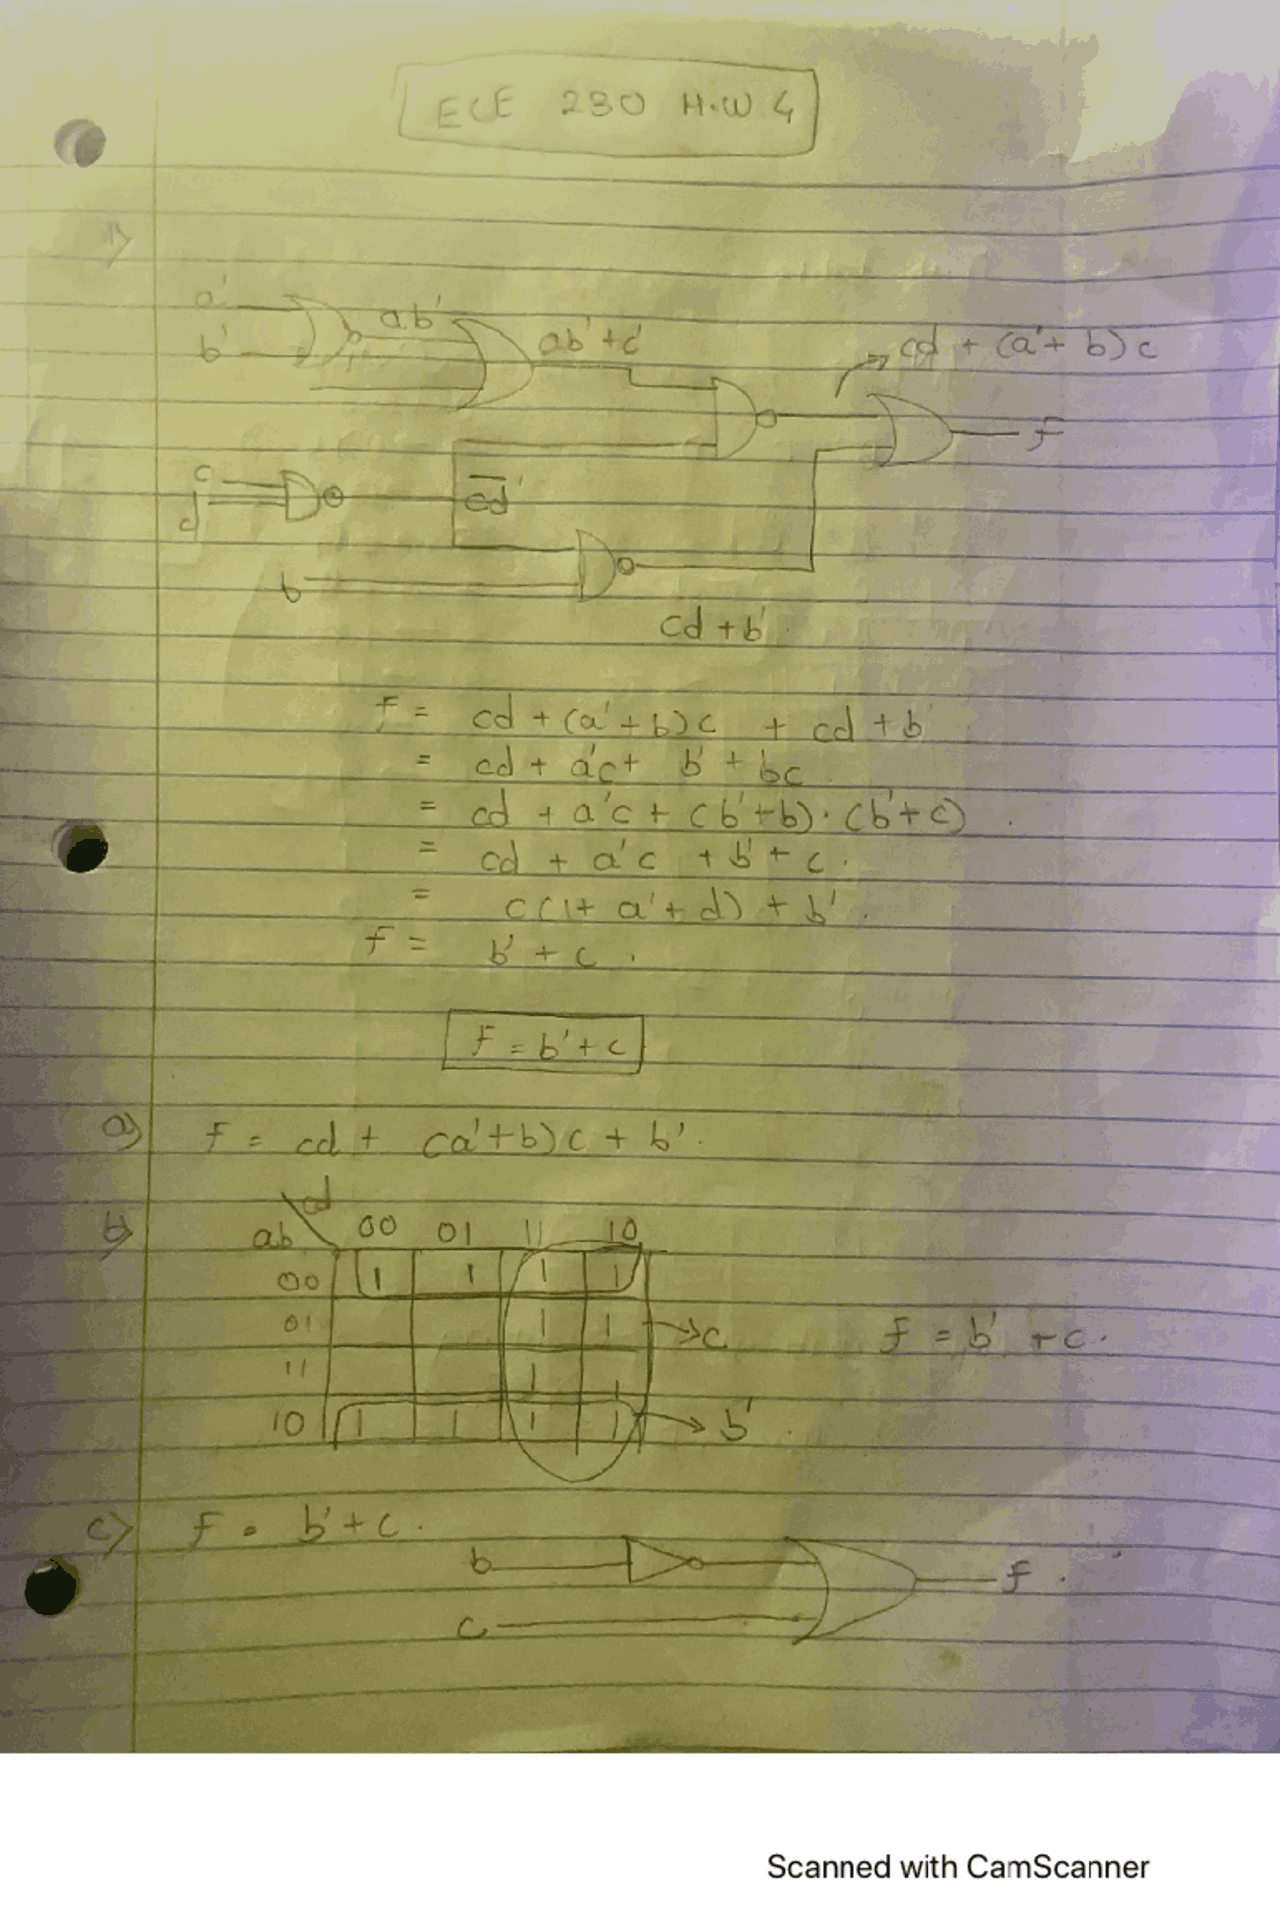 ECE 230 H.W. 4
1)
a'
ab'
b'
ab' + c'
cd + (a' + b) c
f
c
d
cd
b
cd + b'
f = cd + (a' + b) c + cd + b'
= cd + a'c + b' + bc
= cd + a'c + (b' + b) · (b' + c)
= cd + a'c + b' + c.
= c (1 + a' + d) + b'.
f = b' + c.
f = b' + c
a) f = cd + (a' + b) c + b'.
b) cd
ab 00 01 11 10
00 1 1 1 1
01 1 1 → c f = b' + c.
11 1 1
10 1 1 1 1 → b'
c) f = b' + c.
b
f.
c
Scanned with CamScanner